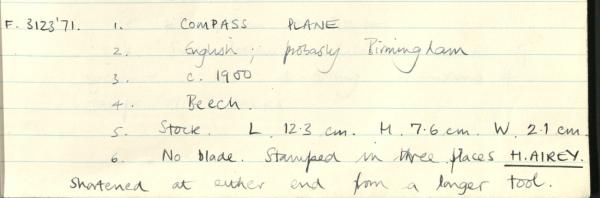 F. 3123'71. 1. COMPASS PLANE
2. English; probably Birmingham
3. c. 1900
4. Beech.
5. Stock. L. 12.3 cm. H. 7.6 cm. W. 2.1 cm.
6. No blade. Stamped in three places H.AIREY.
Shortened at either end from a longer tool.